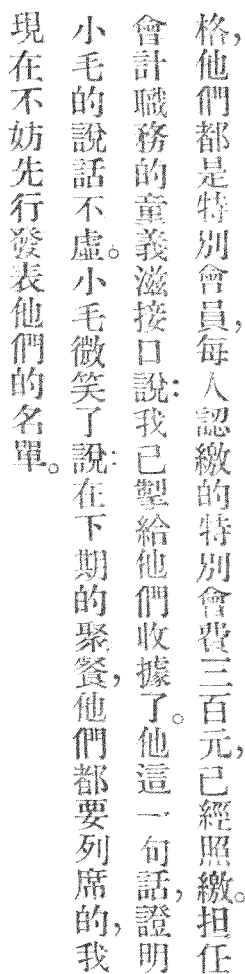 格，他們都是特別會員，每人認繳的特別會費三百元，已經照繳。担任
會計職務的童義滋接口說：我已掣給他們收據了。他這一句話，證明
小毛的說話不虛。小毛微笑了說：在下期的聚餐，他們都要列席的，我
現在不妨先行發表他們的名單。